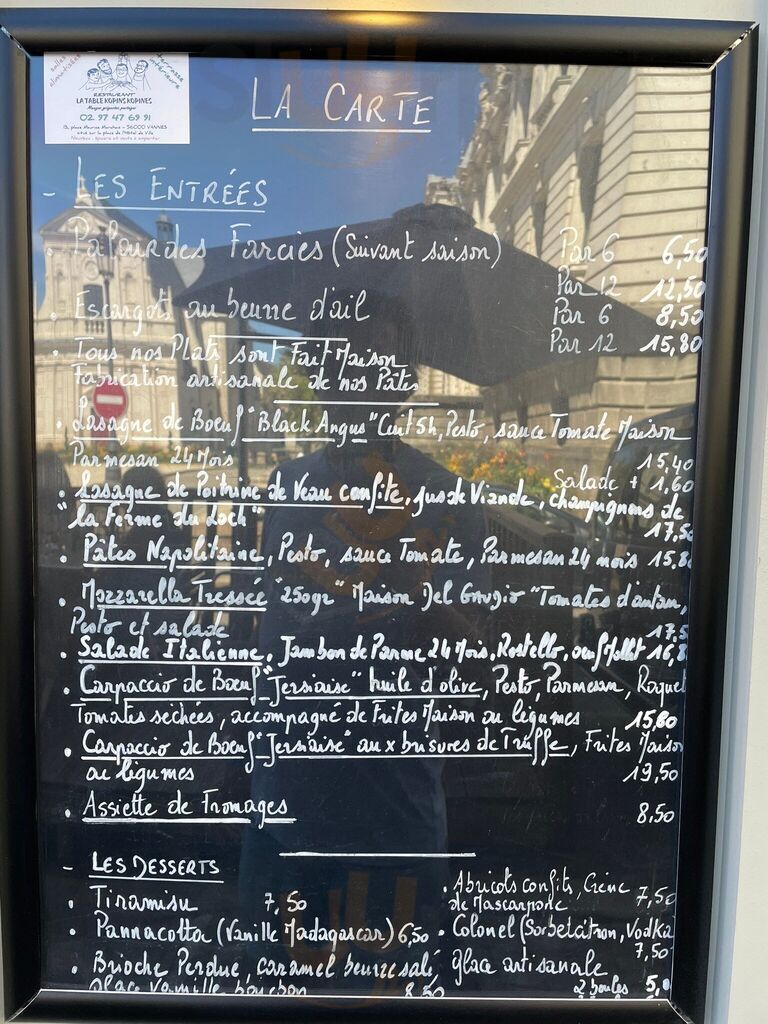 RESTAURANT
LA TABLE KOPINS KOPINES
02 97 47 69 91
13, place Maurice Marchais - 56000 VANNES
situé sur la place de l'Hôtel de Ville
LA CARTE
- LES ENTRÉES
. Palourdes Farcies (Suivant saison) Par 6 6,50
Par 12 12,50
. Escargots au beurre d'ail Par 6 8,50
Par 12 15,80
. Tous nos Plats sont Fait Maison
Fabrication artisanale de nos Pâtes
. Lasagne de Boeuf "Black Angus" Cuit 5h, Pesto, sauce Tomate Maison
Parmesan 24 Mois 15,40
Salade + 1,60
. Lasagne de Poitrine de Veau confite, jus de Viande, champignons de
"la Ferme du Loch" 17,5
. Pâtes Napolitaine, Pesto, sauce Tomate, Parmesan 24 mois 15,8
. Mozzarella Tressée "250gr" Maison Del Gaugio "Tomates d'antan,
Pesto et salade 17,5
. Salade Italienne, Jambon de Parme 24 Mois, Rostello, oeuf Mollet 16,8
. Carpaccio de Boeuf "Jersiaise" huile d'olive, Pesto, Parmesan, Roquet
Tomates séchées, accompagné de Frites Maison ou légumes 15,80
. Carpaccio de Boeuf "Jersiaise" aux brisures de Truffe, Frites Maison
ou légumes 19,50
. Assiette de Fromages 8,50
- LES DESSERTS
. Tiramisu 7,50
. Pannacotta (Vanille Madagascar) 6,50
. Brioche Perdue, caramel beurre salé,
Glace Vanille bourbon 8,50
. Abricots confits, Crème
de Mascarpone 7,50
. Colonel (Sorbet citron, Vodka)
7,50
glace artisanale
2 boules 5,